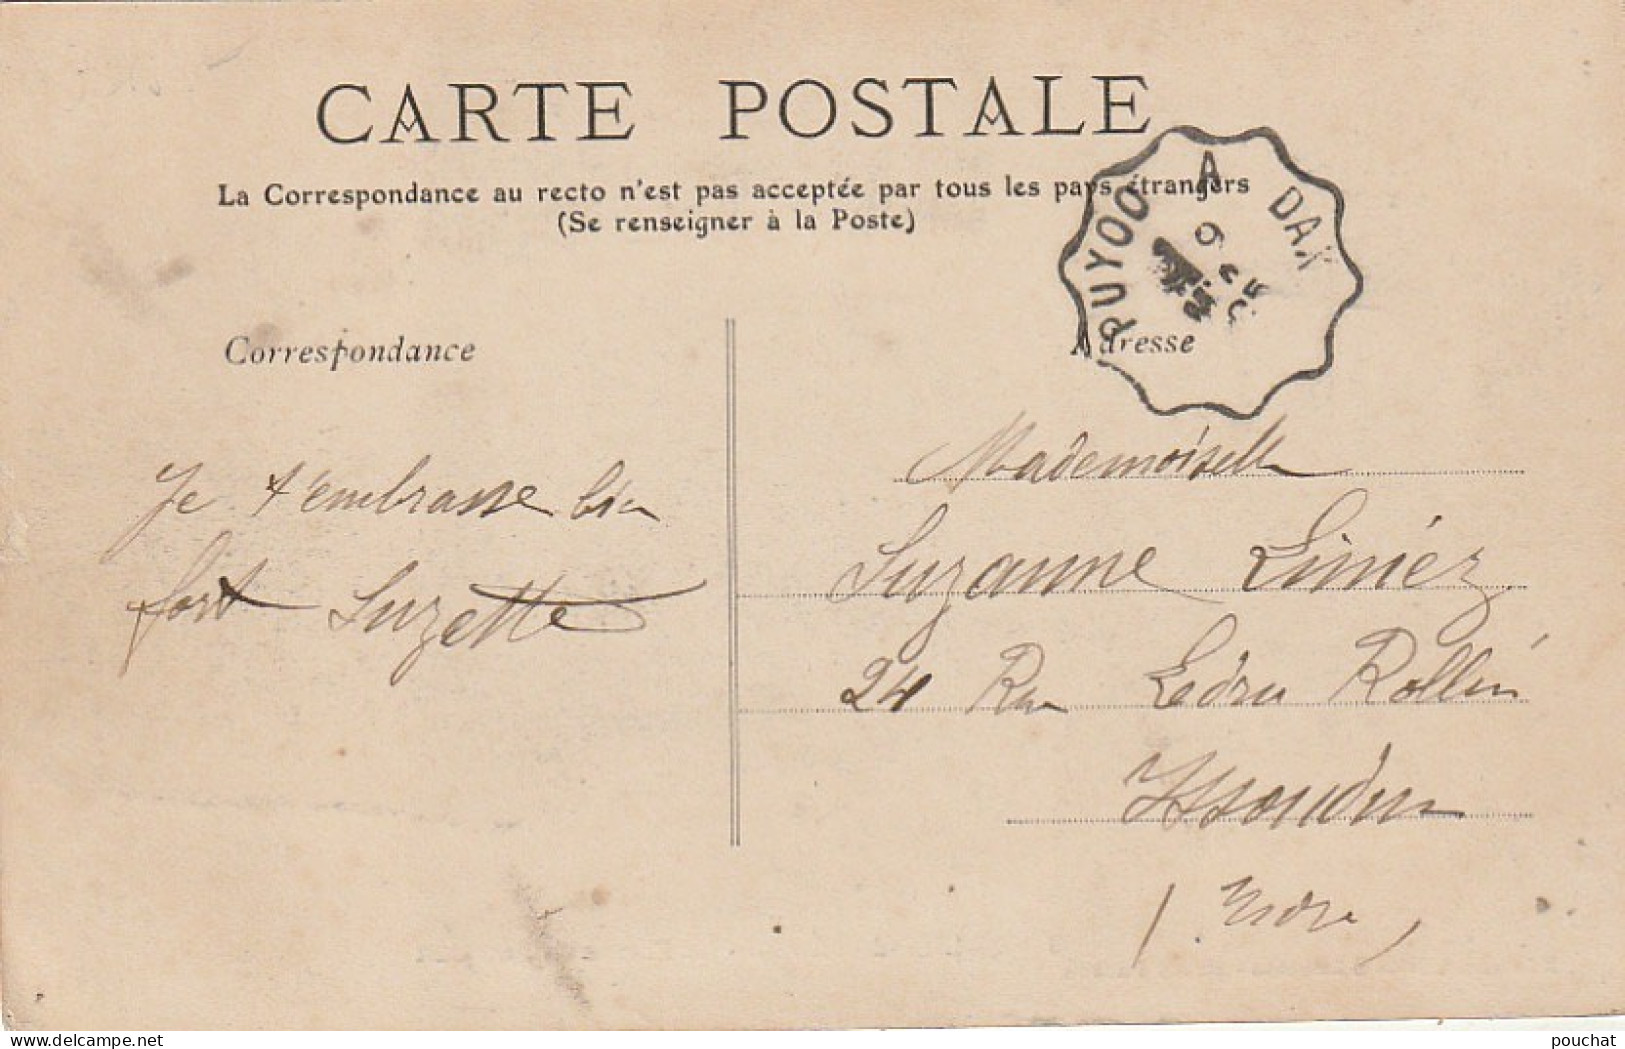 CARTE POSTALE
La Correspondance au recto n'est pas acceptée par tous les pays étrangers
(Se renseigner à la Poste)
PUYOO A DAX
9
05
Correspondance
Adresse
Je t'embrasse bien
fort Suzette
Mademoiselle
Suzanne Liniéz
24 Rue Ledru Rollin
Issoudun
(Indre)
delcampe.net
pouchat